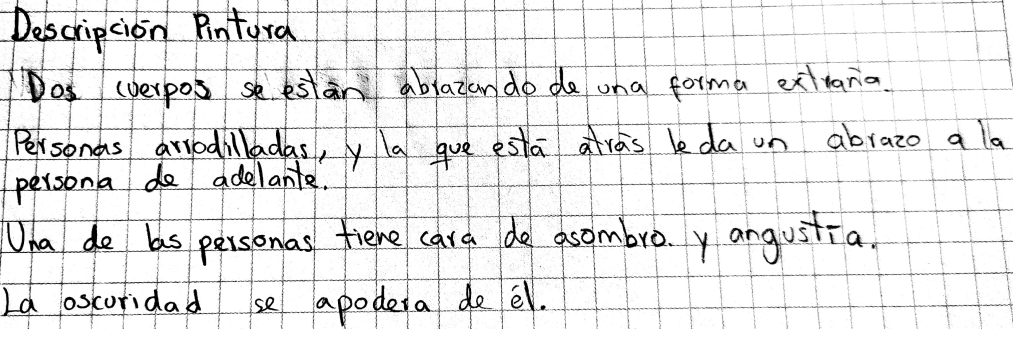 Descripción Pintura
Dos cuerpos se están abrazando de una forma extraña.
Personas arrodilladas, y la que está atrás le da un abrazo a la
persona de adelante.
Una de las personas tiene cara de asombro. y angustia.
La oscuridad se apodera de él.